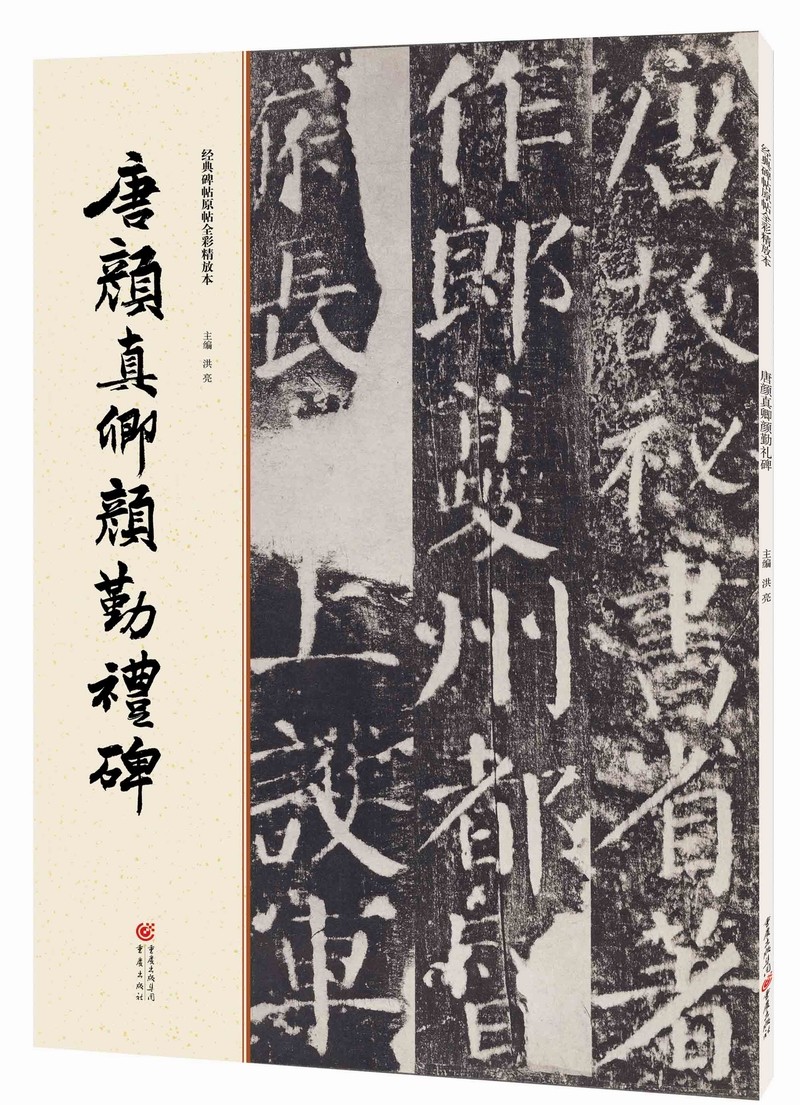 唐故秘書省著
作郎夔州都督
府長
上護軍
经典碑帖原帖全彩精放本
主编 洪亮
唐顔真卿顔勤禮碑
重庆出版集团
重庆出版社
经典碑帖原帖全彩精放本
唐颜真卿颜勤礼碑
主编 洪亮
重庆出版集团
重庆出版社